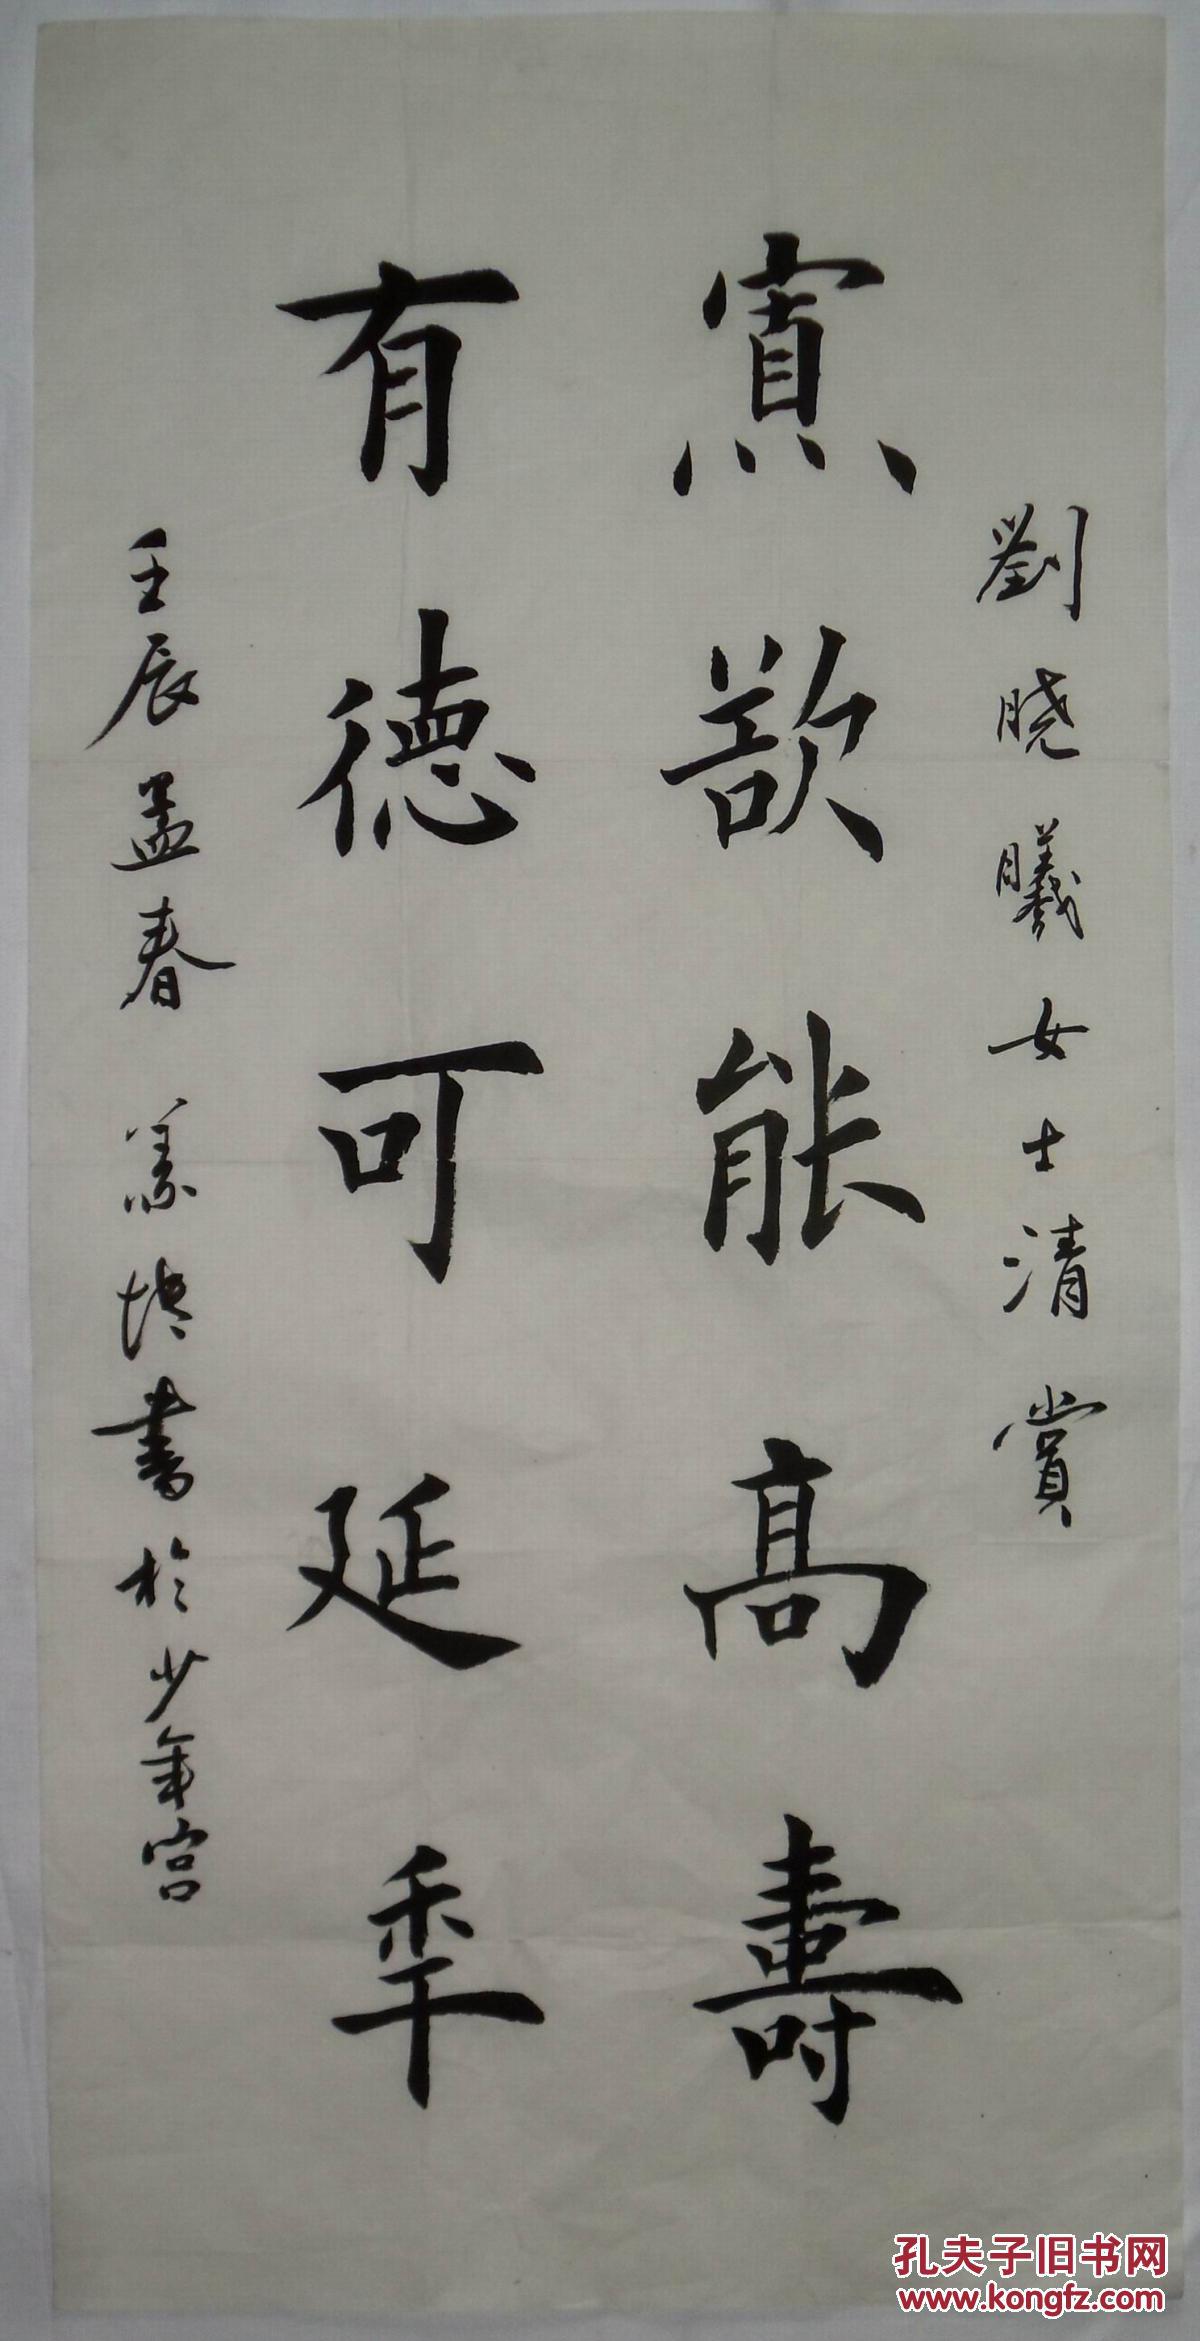 劉晓曦女士清賞
寡欲能高壽
有德可延秊
壬辰孟春 書於少年宮
孔夫子旧书网
www.kongfz.com